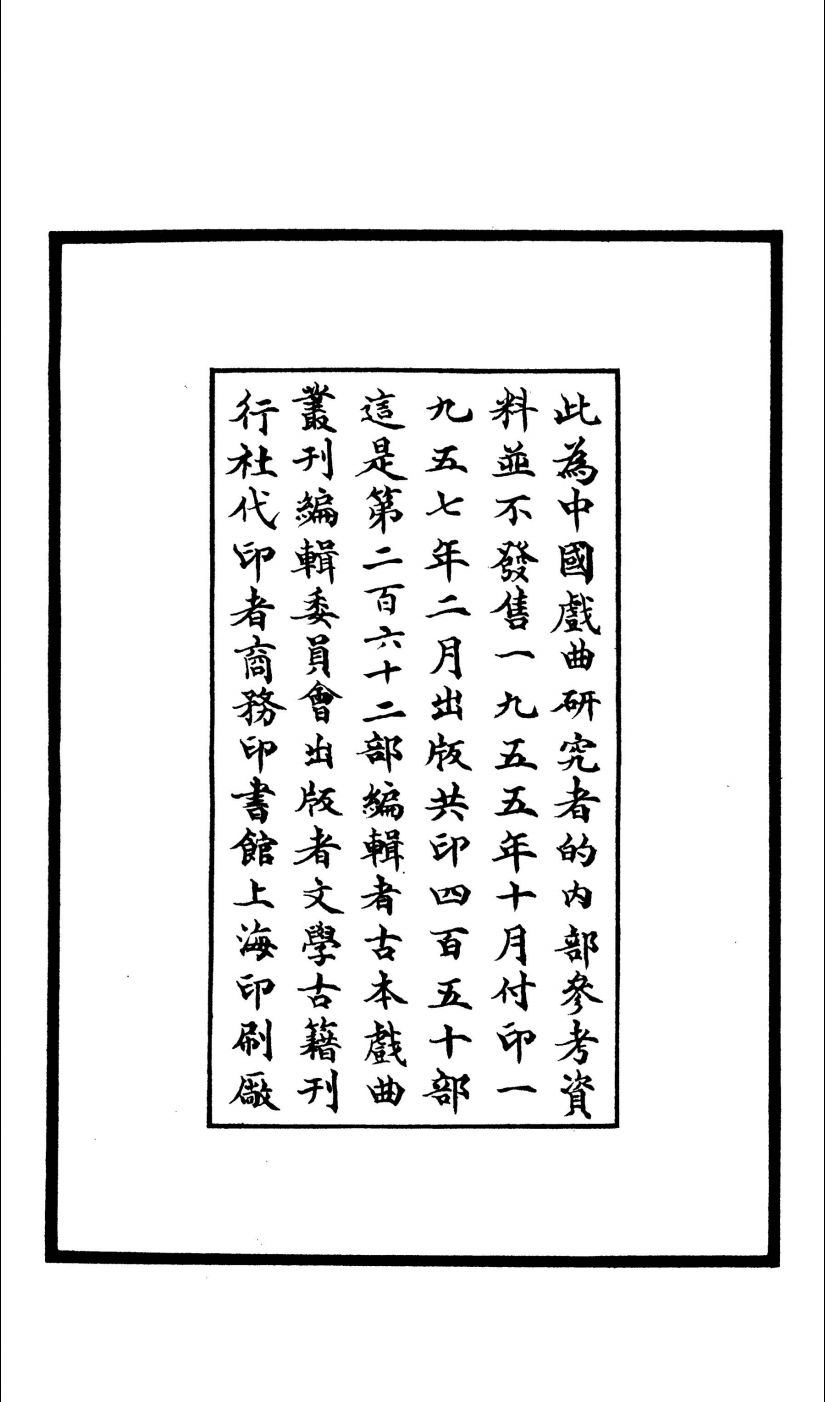 此為中國戲曲研究者的內部參考資
料並不發售一九五五年十月付印一
九五七年二月出版共印四百五十部
這是第二百六十二部編輯者古本戲曲
叢刊編輯委員會出版者文學古籍刊
行社代印者商務印書館上海印刷廠